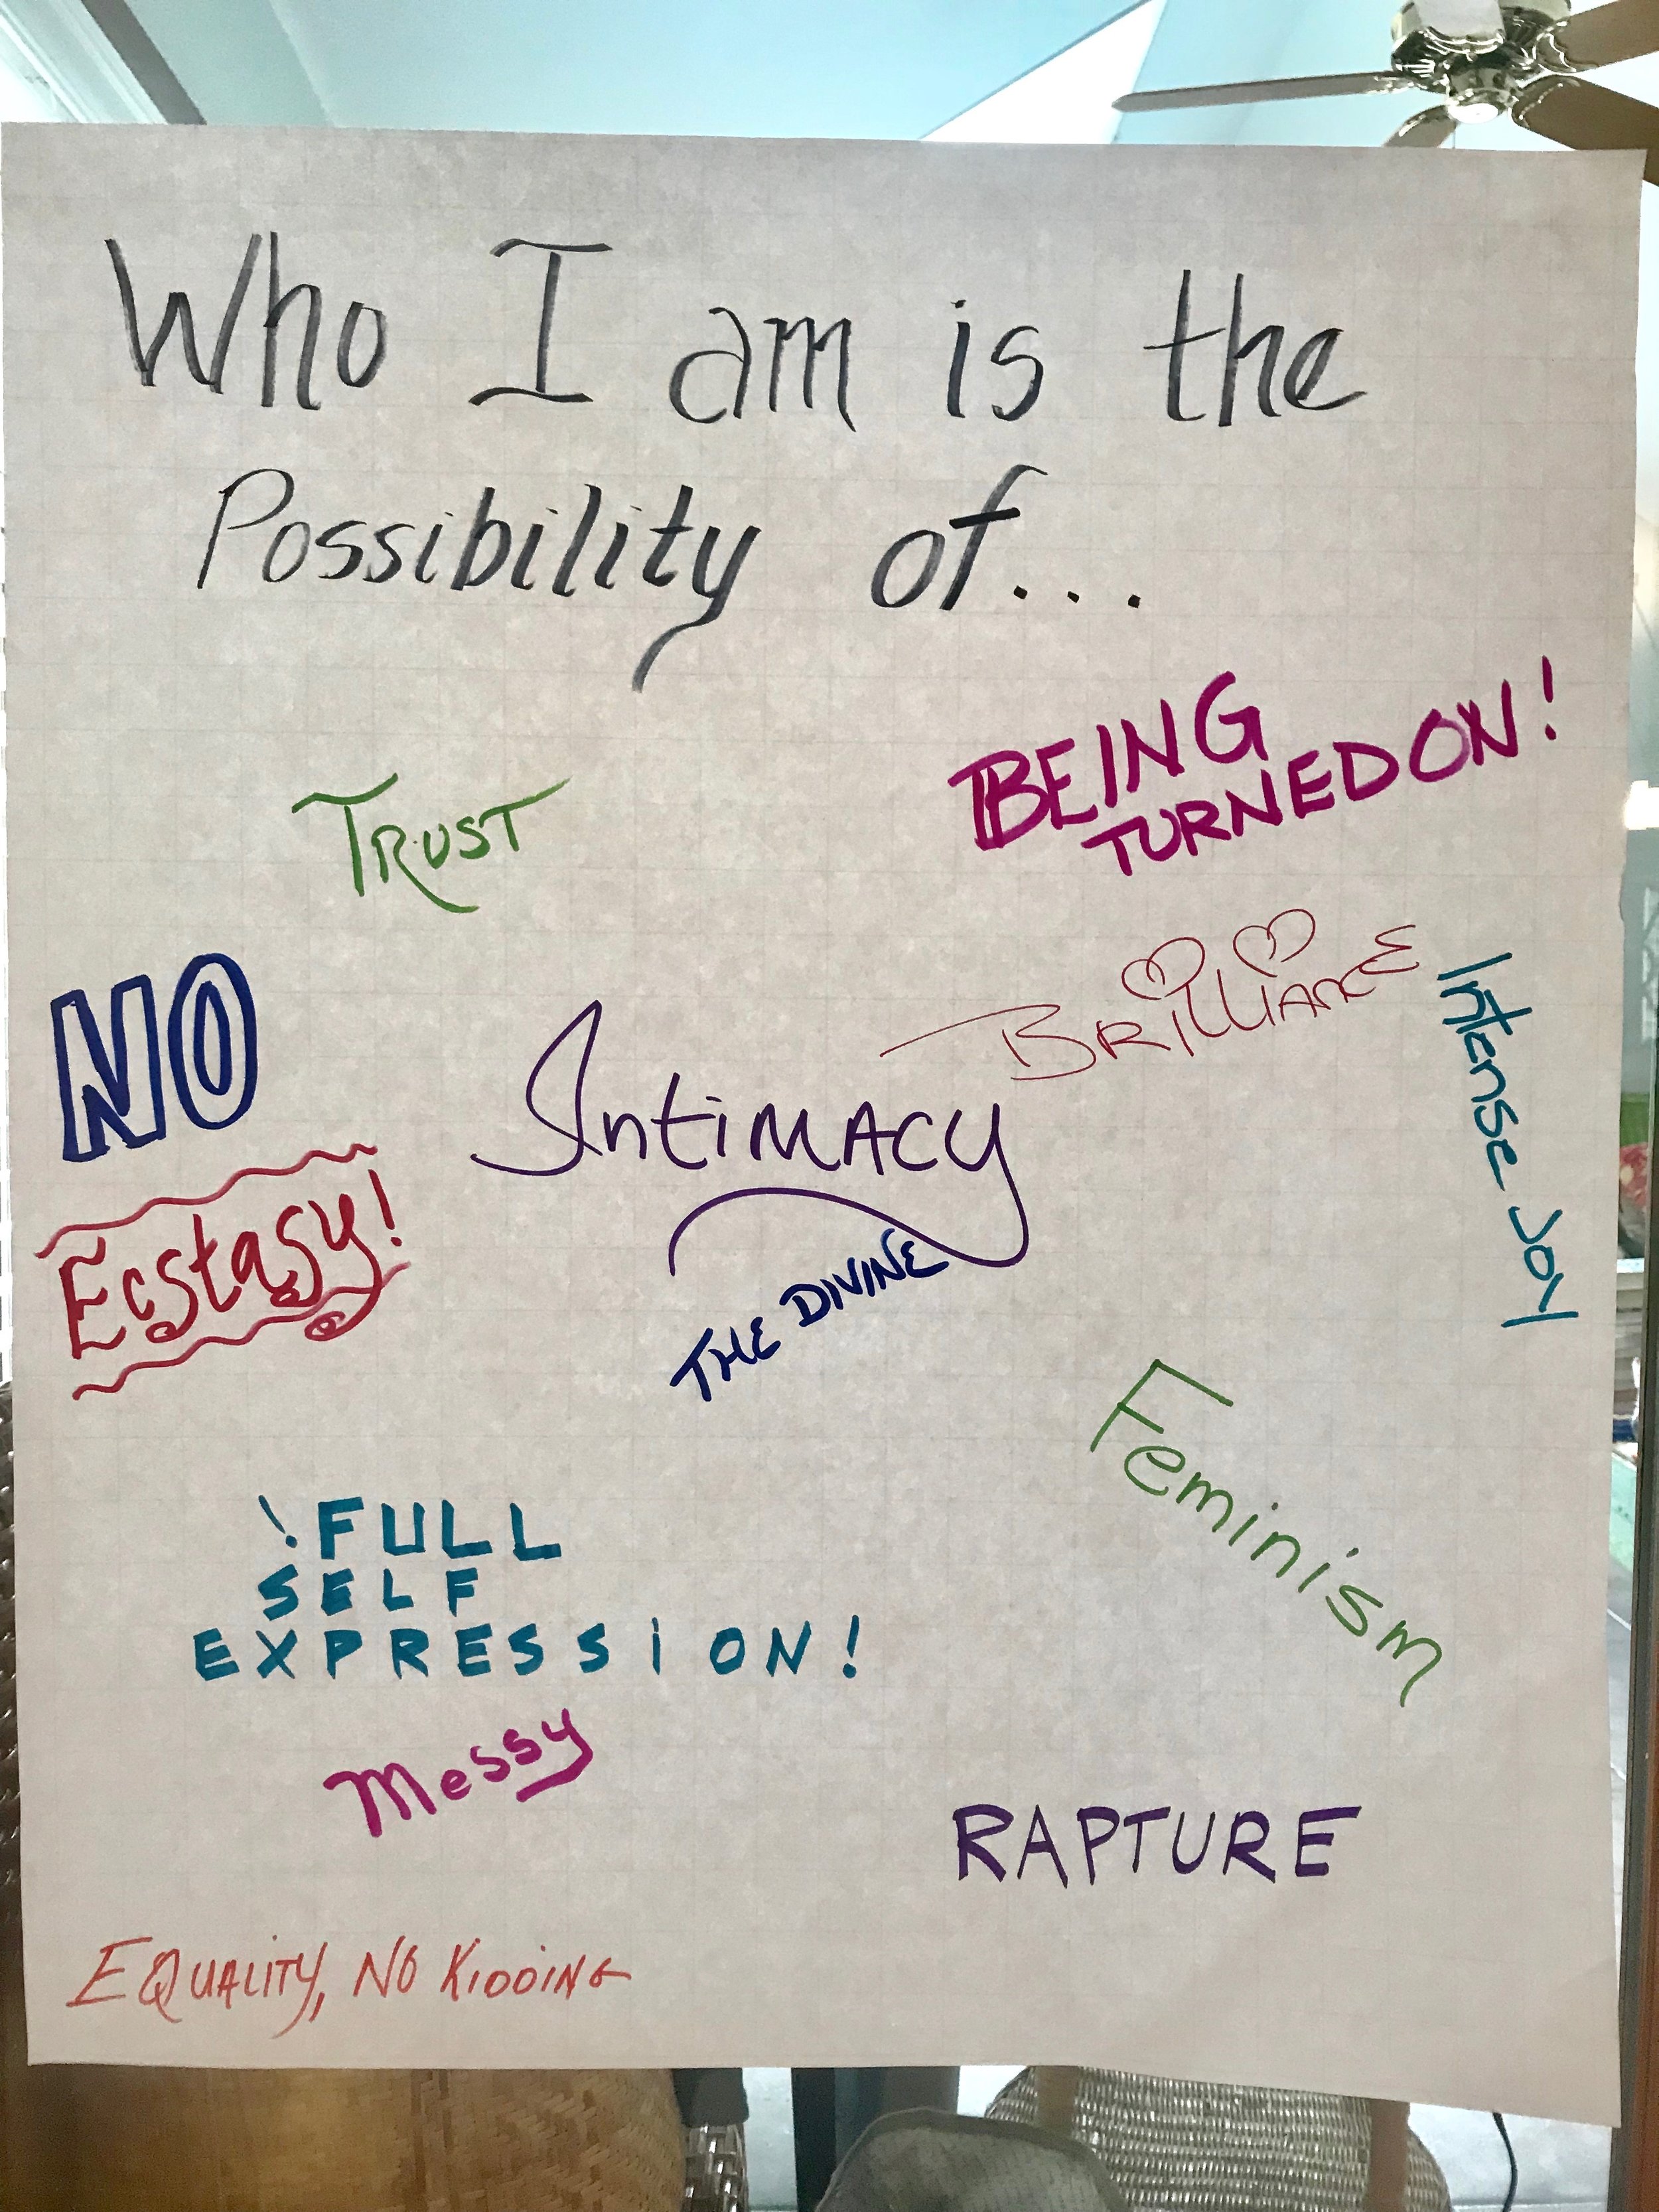 Who I am is the
Possibility of...
BEING
TURNED ON!
TRUST
BRILLIANCE
Intense Joy
NO
IntiMACY
Ecstasy!
THE DIVINE
Feminism
! FULL
SELF
EXPRESSiON!
Messy
RAPTURE
EQUALITY, NO KIDDING